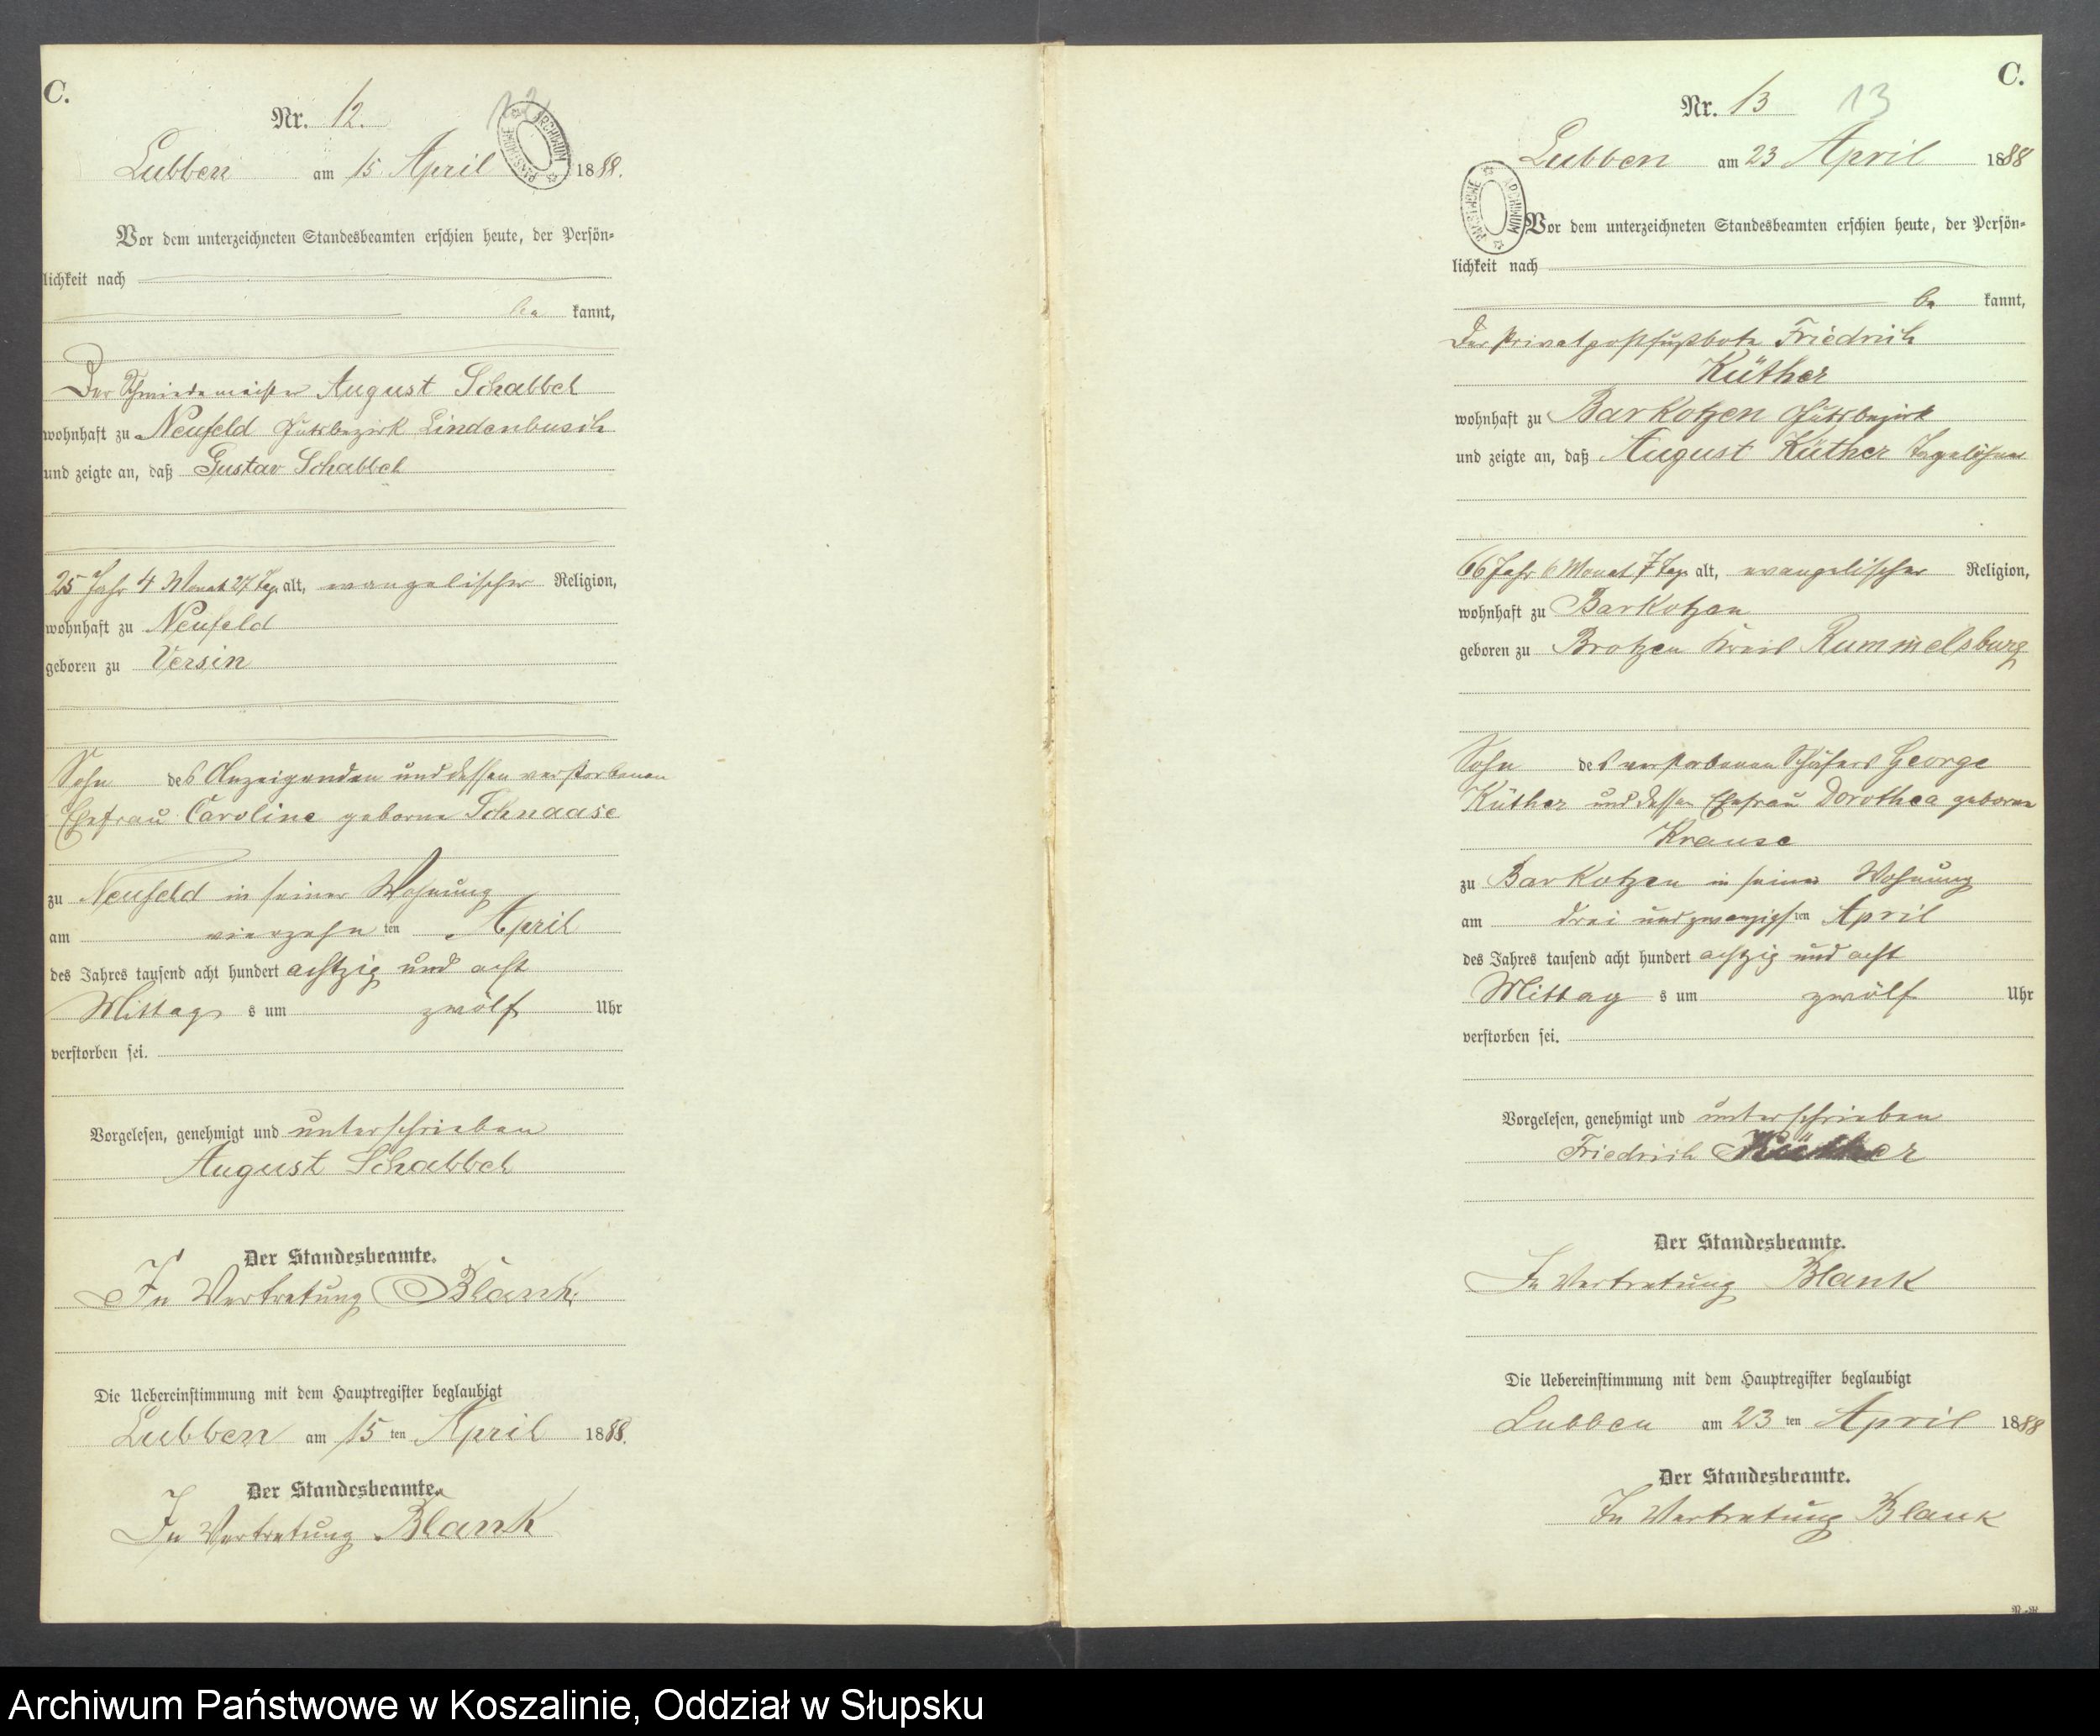 C.
Nr. 12.
12
ARCHIWUM PAŃSTWOWE
Lubben am 15 April 1888.
Vor dem unterzeichneten Standesbeamten erschien heute, der Persön-
lichkeit nach
be kannt,
Der Schmiedemeister August Schabbel
wohnhaft zu Neufeld Gutsbezirk Lindenbusch
und zeigte an, daß Gustav Schabbel
25 Jahr 4 Monat 27 Tage alt, evangelischer Religion,
wohnhaft zu Neufeld
geboren zu Versin
Sohn des Anzeigenden und dessen verstorbenen
Ehefrau Caroline geborne Schnaase
zu Neufeld in seiner Wohnung
am vierzehn ten April
des Jahres tausend acht hundert achtzig und acht
Mittags s um zwölf Uhr
verstorben sei.
Vorgelesen, genehmigt und unterschrieben
August Schabbel
Der Standesbeamte.
In Vertretung Blank.
Die Uebereinstimmung mit dem Hauptregister beglaubigt
Lubben am 15 ten April 1888.
Der Standesbeamte.
In Vertretung Blank
C.
Nr. 13
13
Lubben am 23 April 1888
ARCHIWUM PAŃSTWOWE
Vor dem unterzeichneten Standesbeamten erschien heute, der Persön-
lichkeit nach
be kannt,
Der Privatpostfußbote Friedrich
Küther
wohnhaft zu Barkotzen Gutsbezirk
und zeigte an, daß August Küther Tagelöhner
66 Jahr 6 Monat 7 Tage alt, evangelischer Religion,
wohnhaft zu Barkotzen
geboren zu Brotzen Kreis Rummelsburg
Sohn des verstorbenen Schäfers George
Küther und dessen Ehefrau Dorothea geborne
Krause
zu Barkotzen in seiner Wohnung
am drei und zwanzigsten April
des Jahres tausend acht hundert achtzig und acht
Mittag s um zwölf Uhr
verstorben sei.
Vorgelesen, genehmigt und unterschrieben
Friedrich Küther
Der Standesbeamte.
In Vertretung Blank
Die Uebereinstimmung mit dem Hauptregister beglaubigt
Lubben am 23 ten April 1888
Der Standesbeamte.
In Vertretung Blank
Archiwum Państwowe w Koszalinie, Oddział w Słupsku